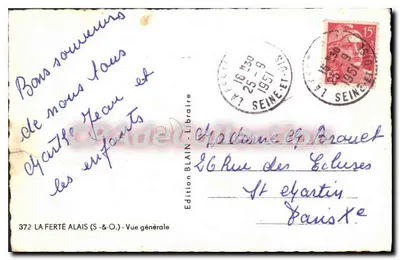 Bons souvenirs
de nous tous
Marth Jean et
les enfants
372 LA FERTÉ ALAIS (S.-&O.) - Vue générale
Edition BLAIN - Libraire
16 H 30
25 - 9
1951
SEINE-ET-OISE
15
16 H 30
25 - 9
1951
SEINE-ET
Madame G. Brouet
26 Rue des Ecluses
St Martin
Paris Xe